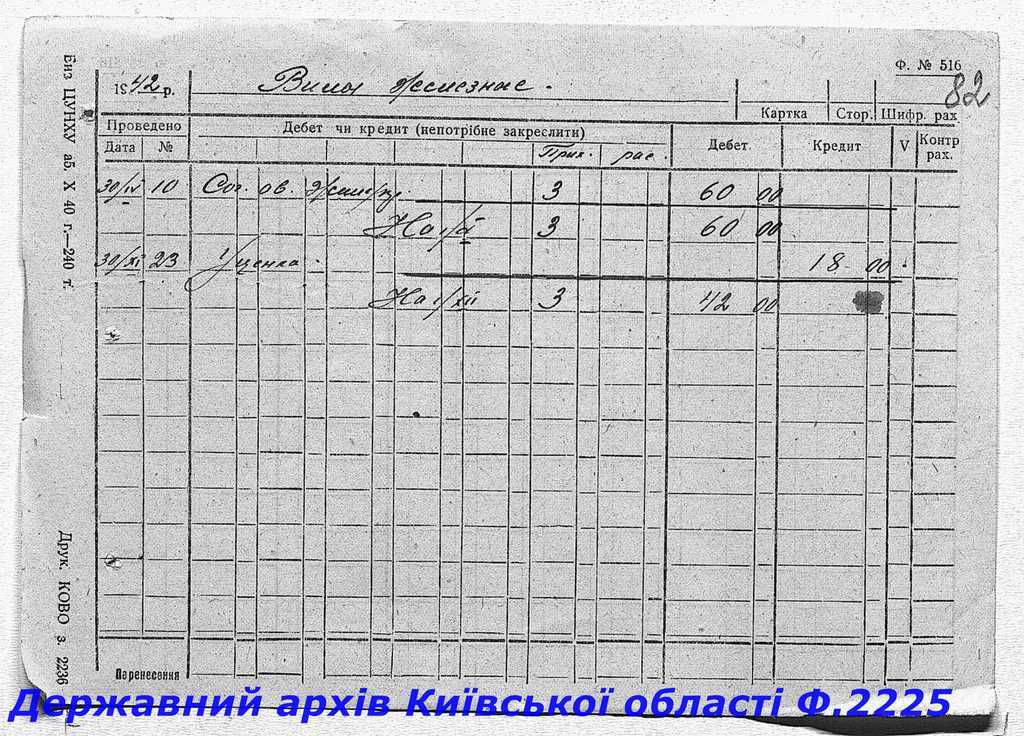 Ф. № 516
82
1942 р. Вила железная.
Картка Стор. Шифр. рах
Проведено Дебет чи кредит (непотрібне закреслити) Дебет Кредит V Контр рах.
Дата № Прих. рас.
30/IV 10 3 60 00
На 3 60 00
30/XI 23 Уценка. 18 00
На 1/XII 3 42 00
Перенесення
Биз ЦУНХУ аб. X 40 г.—240 т.
Друк. КОВО з. 2236
Державний архів Київської області Ф.2225